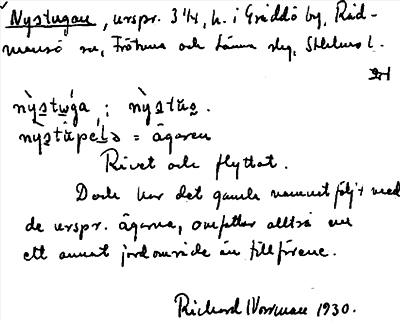 Nystugan, urspr. 3/4, h. i Gräddö by, Råd-
mansö sn, Frötuna och Länna skg, Sthlms l.
nỳstwǵa ; nỳstu̇s .
nỳstu̇pélə = ägaren
Rivet och flyttat.
Dock har det gamla namnet följt med
de urspr. ägarna, omfattar alltså nu
ett annat jordområde än tillförene.
Richard Norrman 1930.